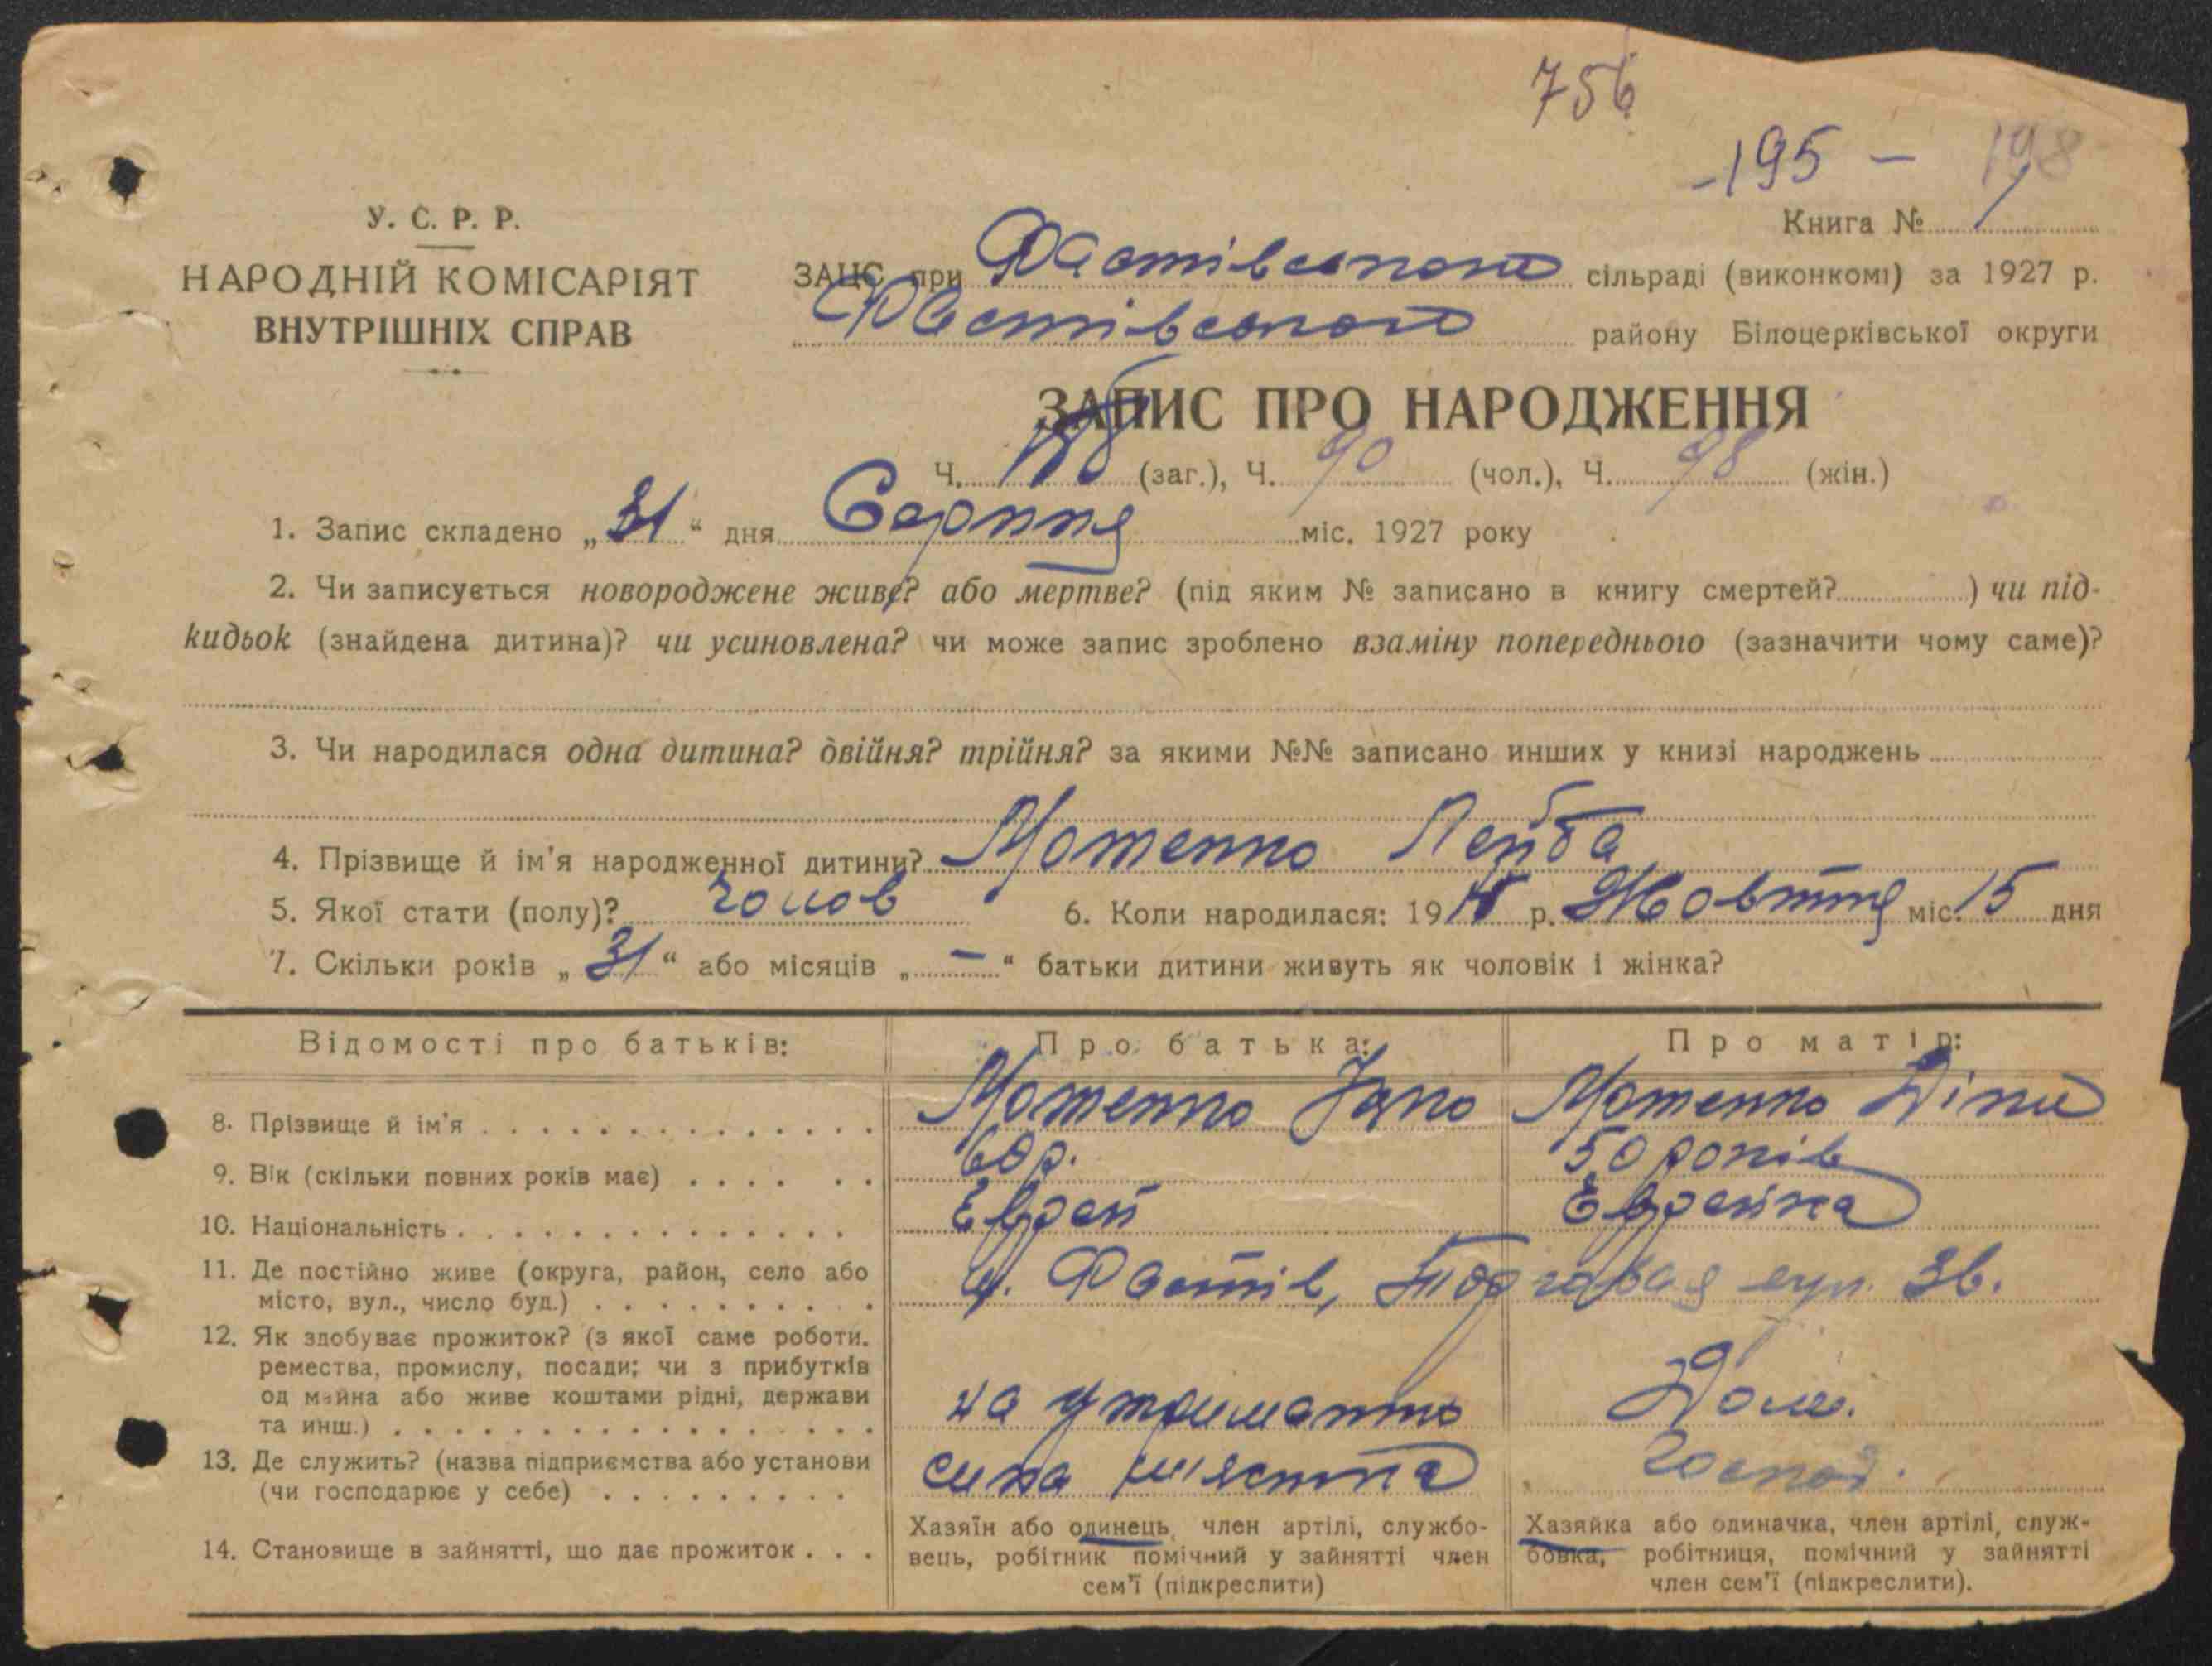 756
-195- 198
У. С. Р. Р.
НАРОДНІЙ КОМІСАРІЯТ
ВНУТРІШНІХ СПРАВ
Книга № 1
ЗАЦС при Фастівському сільраді (виконкомі) за 1927 р.
Фастівського району Білоцерківської округи
ЗАПИС ПРО НАРОДЖЕННЯ
Ч. (заг.), Ч. 90 (чол.), Ч. 98 (жін.)
1. Запис складено „31“ дня Серпня міс. 1927 року
2. Чи записується новороджене живе? або мертве? (під яким № записано в книгу смертей? ) чи під-
кидьок (знайдена дитина)? чи усиновлена? чи може запис зроблено взаміну попереднього (зазначити чому саме)?
3. Чи народилася одна дитина? двійня? трійня? за якими №№ записано инших у книзі народжень
4. Прізвище й ім'я народженної дитини? Мотенко Лейба
5. Якої стати (полу)? чолов 6. Коли народилася: 19 р. Жовтня міс. 15 дня
7. Скільки років „31“ або місяців „—“ батьки дитини живуть як чоловік і жінка?
Відомості про батьків: Про батька: Про матір:
8. Прізвище й ім'я . . . . . . . . . . . . . . Мотенко Мотенко
9. Вік (скільки повних років має) . . . . . . 60 р. 50 років
10. Національність . . . . . . . . . . . . . . Еврей Еврейка
11. Де постійно живе (округа, район, село або
місто, вул., число буд.) . . . . . . . . . . м. Фастів, Торговая вул. 36.
12. Як здобуває прожиток? (з якої саме роботи.
ремества, промислу, посади; чи з прибутків
од майна або живе коштами рідні, держави
та инш.) . . . . . . . . . . . . . . . . . на утриманню Дом.
13. Де служить? (назва підприємства або установи
(чи господарює у себе) . . . . . . . . . сина Господ.
14. Становище в зайнятті, що дає прожиток . . .
Хазяїн або одинець, член артілі, службо-
вець, робітник помічний у зайнятті член
сем'ї (підкреслити)
Хазяйка або одиначка, член артілі, служ-
бовка, робітниця, помічний у зайнятті
член сем'ї (підкреслити).